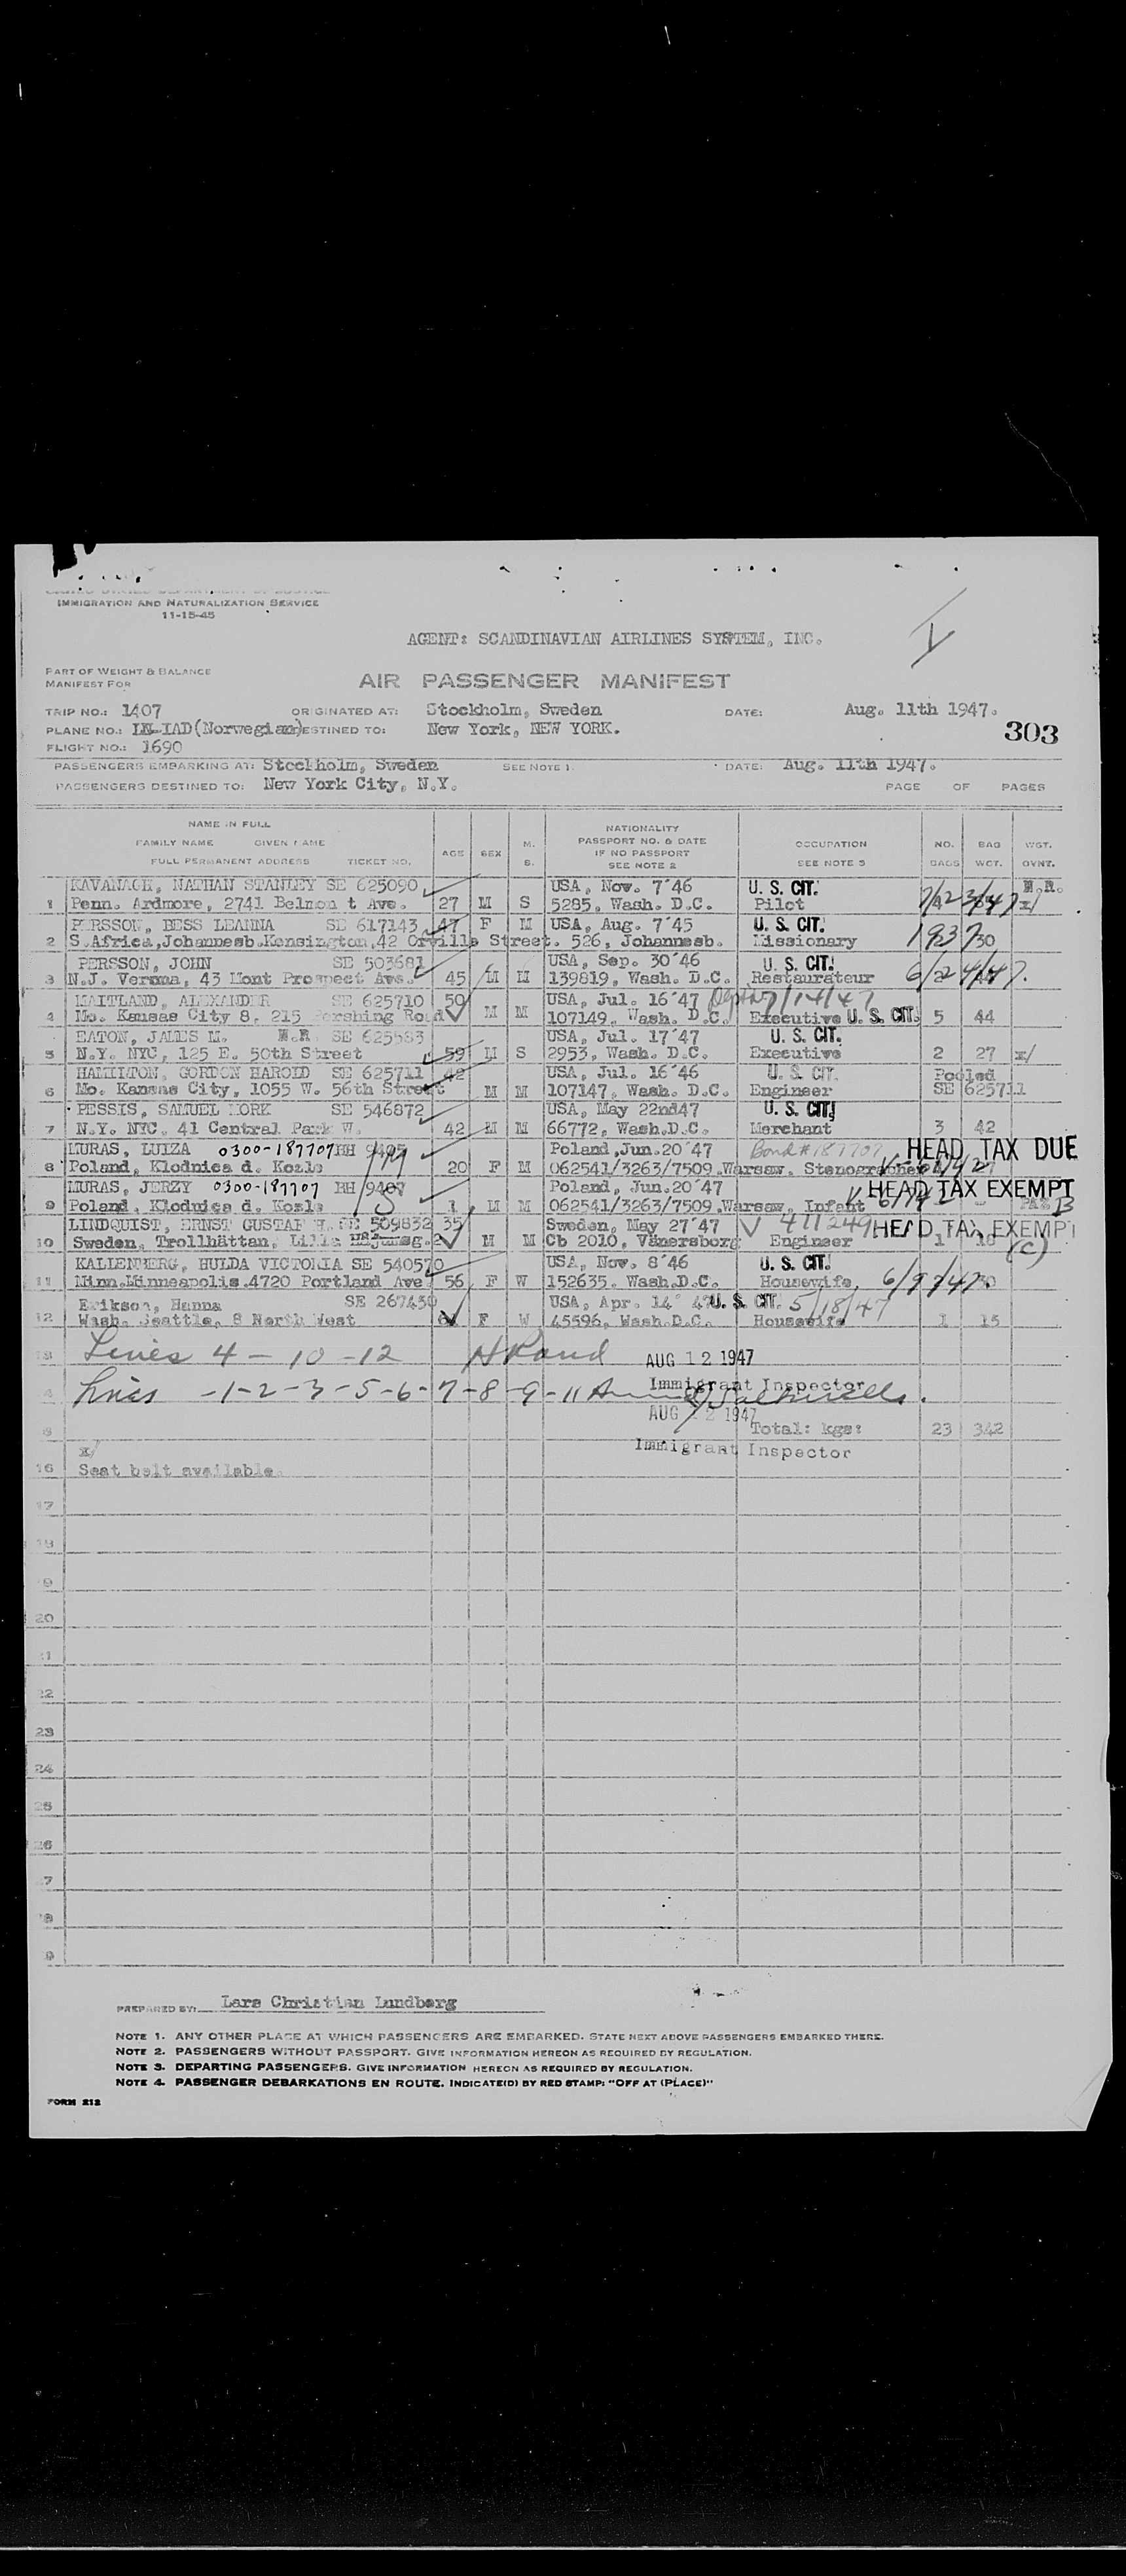 IMMIGRATION AND NATURALIZATION SERVICE
11-15-45
AGENT: SCANDINAVIAN AIRLINES SYSTEM, INC.
PART OF WEIGHT & BALANCE
MANIFEST FOR
AIR PASSENGER MANIFEST
TRIP NO.: 1407 ORIGINATED AT: Stockholm, Sweden DATE: Aug. 11th 1947.
PLANE NO.: LN-IAD(Norwegian) DESTINED TO: New York, NEW YORK. 303
FLIGHT NO.: 1690
PASSENGERS EMBARKING AT: Stockholm, Sweden SEE NOTE 1. DATE: Aug. 11th 1947.
PASSENGERS DESTINED TO: New York City, N.Y. PAGE OF PAGES
NAME IN FULL
FAMILY NAME GIVEN NAME
FULL PERMANENT ADDRESS TICKET NO.
AGE SEX M. S.
NATIONALITY
PASSPORT NO. & DATE
IF NO PASSPORT
SEE NOTE 2
OCCUPATION
SEE NOTE 3
NO. BAGS BAG WGT. WGT. OVNT.
KAVANAGH, NATHAN STANLEY SE 625090 USA, Nov. 7'46 U. S. CIT. N.R.
1 Penn. Ardmore, 2741 Belmon t Ave. 27 M S 5285, Wash. D.C. Pilot x/
PERSSON, BESS LEANNA SE 617143 47 F M USA, Aug. 7'45 U. S. CIT.
2 S.Africa,Johannesb.Kensington,42 Orville Street. 526, Johannesb. Missionary 30
PERSSON, JOHN SE 503681 USA, Sep. 30'46 U. S. CIT.
3 N.J. Verona, 43 Mont Prospect Ave. 45 M M 139819, Wash. D.C. Restaurateur
MAITLAND, ALEXANDER SE 625710 59 USA, Jul. 16'47 7/14/47
4 Mo. Kansas City 8, 215 Pershing Road M M 107149, Wash. D.C. Executive U. S. CIT. 5 44
EATON, JAMES M. N.R. SE 625583 USA, Jul. 17'47 U. S. CIT.
5 N.Y. NYC, 125 E. 50th Street 59 M S 2953, Wash. D.C. Executive 2 27 x/
HAMILTON, GORDON HAROLD SE 625711 42 USA, Jul. 16'46 U. S. CIT. Pooled
6 Mo. Kansas City, 1055 W. 56th Street M M 107147, Wash. D.C. Engineer SE 625711
PESSIS, SAMUEL MORK SE 546872 USA, May 22nd47 U. S. CIT.
7 N.Y. NYC, 41 Central Park W. 42 M M 66772, Wash.D.C. Merchant 3 42
MURAS, LUIZA 0300-187707 BH 9405 Poland,Jun.20'47 Bond # 187707 HEAD TAX DUE
8 Poland, Klodnica d. Kozle 20 F M 062541/3263/7509 Warsaw. Stenographer
MURAS, JERZY 0300-187707 BH 9407 Poland, Jun.20'47 HEAD TAX EXEMPT
9 Poland, Klodnica d. Kozle 1 M M 062541/3263/7509 Warsaw. Infant B
LINDQUIST, ERNST GUSTAF H. SE 509832 35 Sweden, May 27'47 411249 HEAD TAX EXEMPT
10 Sweden, Trollhättan, Lilla M M Cb 2010, Vänersborg Engineer 1 18 (C)
KALLENBERG, HULDA VICTORIA SE 540570 USA, Nov. 8'46 U. S. CIT.
11 Minn.Minneapolis.4720 Portland Ave. 56 F W 152635, Wash.D.C. Housewife,
Erikson, Hanna SE 267439 USA, Apr. 14' U. S. CIT. 5/18/47
12 Wash. Seattle, 8 North West F W 45596, Wash.D.C. Housewife 1 15
Lines 4 - 10 - 12 AUG 12 1947
Immigrant Inspector
Lines - 1 - 2 - 3 - 5 - 6 - 7 - 8 - 9 - 11
AUG 12 1947
Total: kgs: 23 342
Immigrant Inspector
x/
16 Seat belt available.
17
18
19
20
21
22
23
24
25
26
27
28
29
PREPARED BY: Lars Christian Lundberg
NOTE 1. ANY OTHER PLACE AT WHICH PASSENGERS ARE EMBARKED. STATE NEXT ABOVE PASSENGERS EMBARKED THERE.
NOTE 2. PASSENGERS WITHOUT PASSPORT. GIVE INFORMATION HEREON AS REQUIRED BY REGULATION.
NOTE 3. DEPARTING PASSENGERS. GIVE INFORMATION HEREON AS REQUIRED BY REGULATION.
NOTE 4. PASSENGER DEBARKATIONS EN ROUTE. INDICATE(D) BY RED STAMP: "OFF AT (PLACE)"
FORM 212